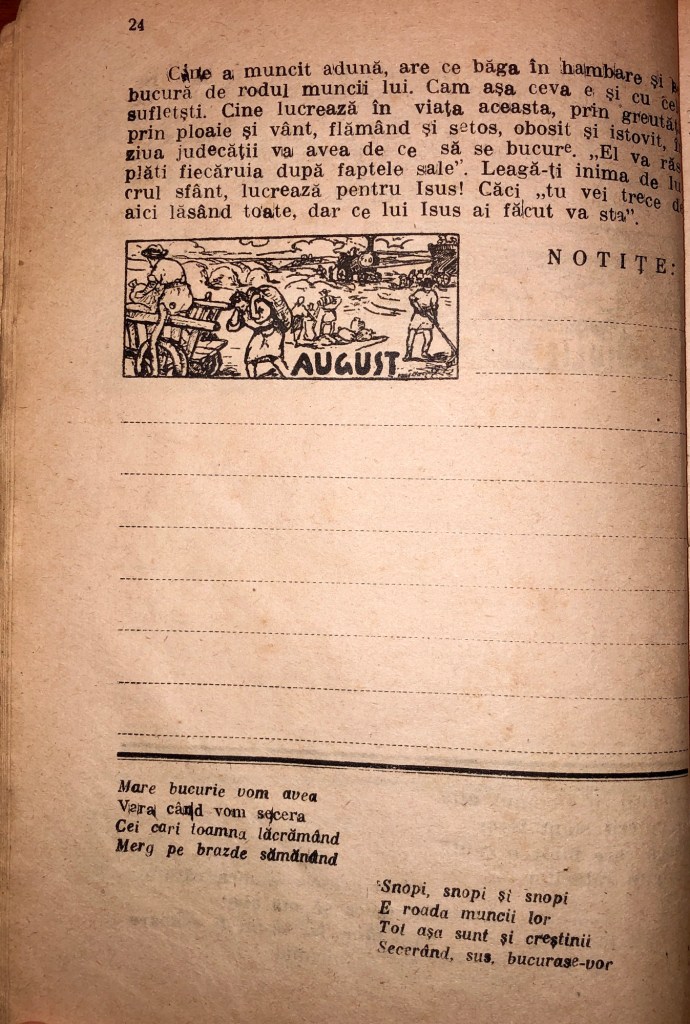 24
Cine a muncit adună, are ce băga în hambare și
bucură de rodul muncii lui. Cam așa ceva e și cu cei
sufletști. Cine lucrează în viața aceasta, prin greutăț
prin ploaie și vânt, flămând și setos, obosit și istovit, î
ziua judecății va avea de ce să se bucure. „El va răs
plăti fiecăruia după faptele sale”. Leagă-ți inima de lu
crul sfânt, lucrează pentru Isus! Căci „tu vei trece de
aici lăsând toate, dar ce lui Isus ai făcut va sta”.
NOTIȚE:
AUGUST
Mare bucurie vom avea
Vara când vom secera
Cei cari toamna lăcrămând
Merg pe brazde sămănând
Snopi, snopi și snopi
E roada muncii lor
Tot așa sunt și creștinii
Secerând, sus, bucurase-vor